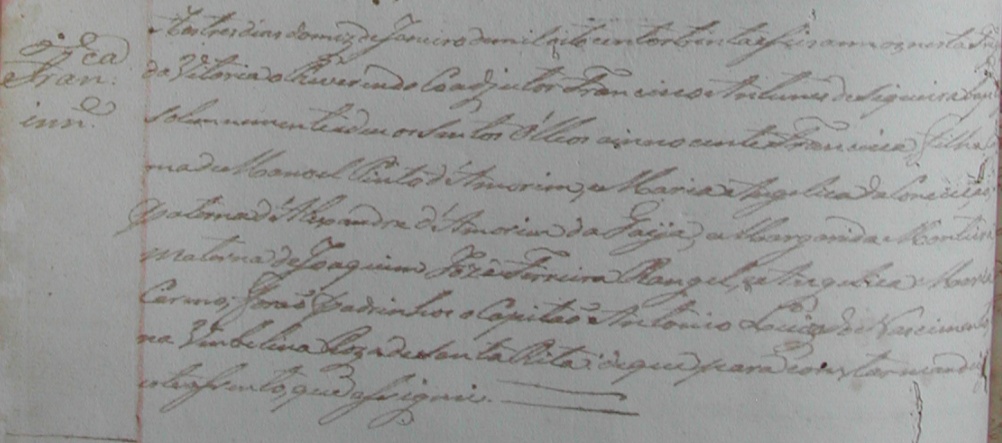 Fran.ca
inn.e
Aos tres dias do mez de Janeiro de mil oito centos trinta e seis annos nesta
da Vitoria o Reverendo Coadjutor Francisco Antunes de Siqueira
solemnemente e deu os Santos Óleos a innocente Francisca, filha
ma de Manoel Pinto d'Amorim, e Maria Angelica da Conceição
paterna d'Alexandre d'Amorim da Gaija, e Margarida Monteira
materna de Joaquim José Ferreira Rangel, e Angelica Maria
Carmo; forão Padrinhos o Capitão Antonio do Nascimento
na Umbelina Roza de Santa Rita: de que para constar mandei
este assento, que assignei.